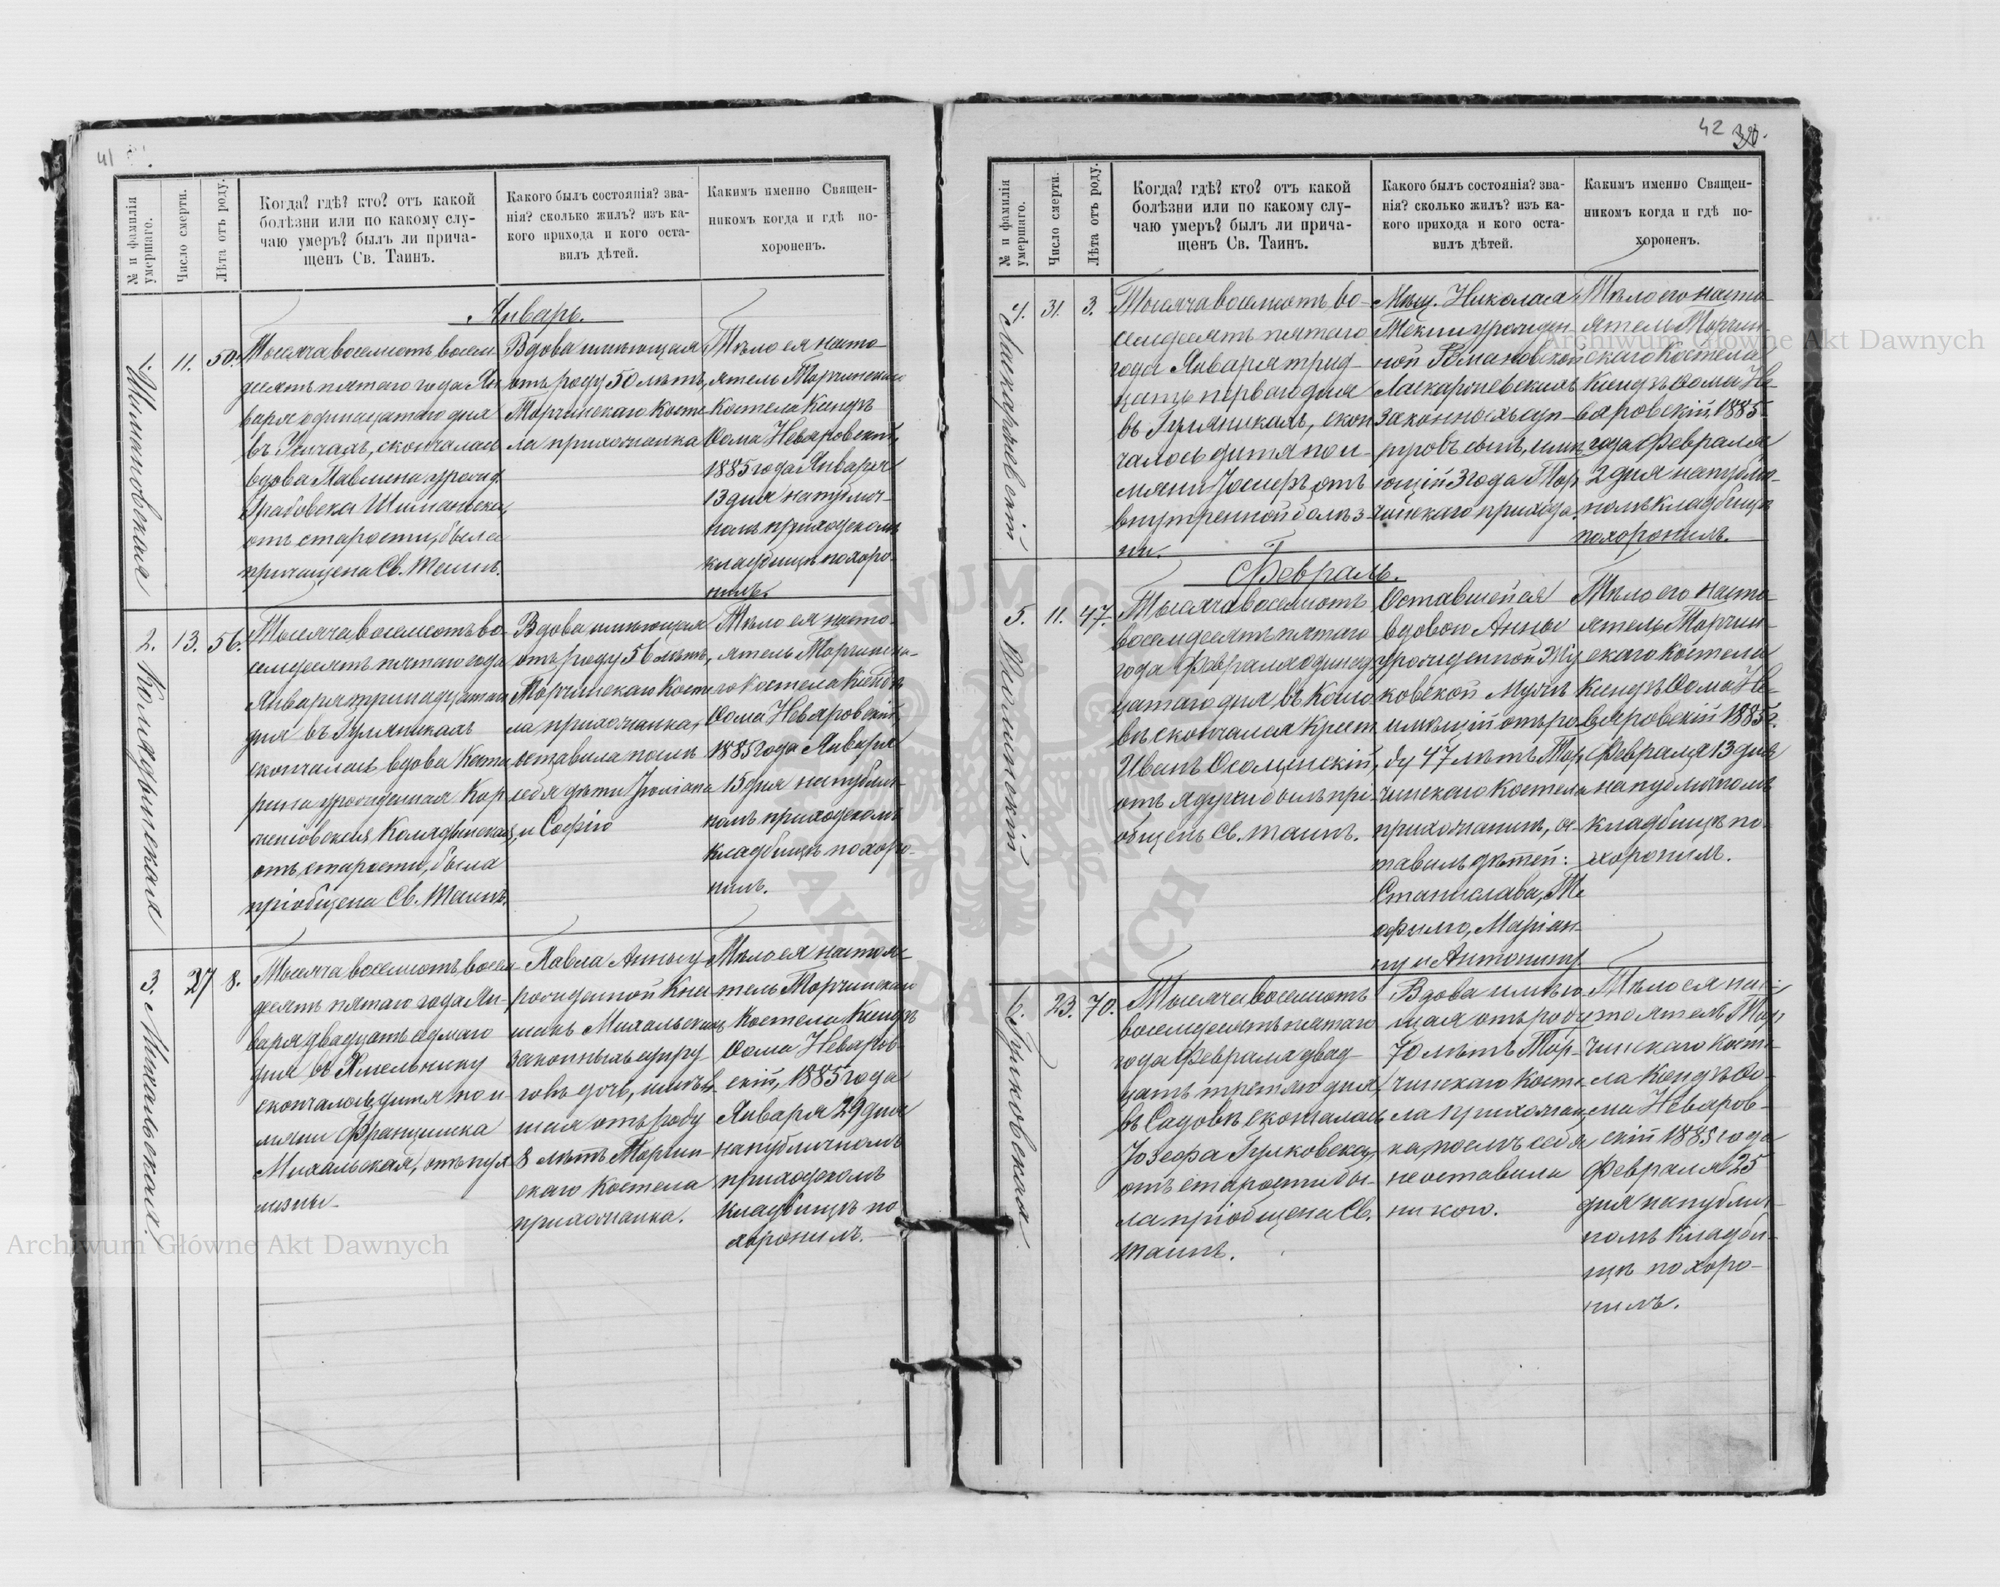 41
№ и фамилія умершаго.
Число смерти.
Лѣта отъ роду.
Когда? гдѣ? кто? отъ какой
болѣзни или по какому слу-
чаю умеръ? былъ ли прича-
щенъ Св. Таинъ.
Какого былъ состоянія? зва-
нія? сколько жилъ? изъ ка-
кого прихода и кого оста-
вилъ дѣтей.
Какимъ именно Священ-
никомъ когда и гдѣ по-
хороненъ.
Январь.
1. Шимановская
11.
50.
Тысяча восемсотъ восем
десятъ пятаго года Ян
варя одинацатаго дня
скончалась
вдова Павлина урожд.
Грабовска Шимановска,
отъ старости, была
причащена Св. Таинъ.
Вдова имѣющая
отъ роду 50 лѣтъ,
Торчинскаго Косте
ла прихожанка
Тѣло ея насто-
ятель Торчинскаго
Костела Ксендзъ
Ѳома Невяровскій,
1885 года Января
13 дня на публич-
номъ приходскомъ
кладбищѣ похоро-
нилъ.
2.
13.
56.
Тысяча восемсотъ во-
семдесятъ пятаго года
Января тринадцатаго
дня въ Гуляникахъ
скончалась вдова Кате
рина урожденная Кор
отъ старости, была
пріобщена Св. Таинъ.
Вдова имѣющая
отъ роду 56 лѣтъ,
Торчинскаго Косте
ла прихожанка,
оставила послѣ
себя дѣти Юліана
и Софію
Тѣло ея насто-
ятель Торчинска-
го Костела Ксендзъ
Ѳома Невяровскій,
1885 года Января
15 дня на публич-
номъ приходскомъ
кладбищѣ похоро-
нилъ.
3. Михальская.
27
8.
Тысяча восемсотъ восем
десятъ пятаго года Ян-
варя двадцать седмаго
дня въ Хмельнику
скончалось дитя по и-
мяни Францишка
Михальская,
Павла Анны у-
рожденной
Михальскихъ
законныхъ супру-
говъ дочь, имѣю
щая отъ роду
8 лѣтъ Торчин-
скаго Костела
прихожанка.
Тѣло ея настоя-
тель Торчинскаго
Костела Ксендзъ
Ѳома Невяров-
скій, 1885 года
Января 29 дня
на публичномъ
приходскомъ
кладбищѣ по
хоронилъ.
42
№ и фамилія умершаго.
Число смерти.
Лѣта отъ роду.
Когда? гдѣ? кто? отъ какой
болѣзни или по какому слу-
чаю умеръ? былъ ли прича-
щенъ Св. Таинъ.
Какого былъ состоянія? зва-
нія? сколько жилъ? изъ ка-
кого прихода и кого оста-
вилъ дѣтей.
Какимъ именно Священ-
никомъ когда и гдѣ по-
хороненъ.
4.
31.
3.
Тысяча восемсотъ во-
семдесятъ пятаго
года Января трид-
цать перваго дня
въ Гуляникахъ, скон
чалось дитя по и-
мяни Іосифъ отъ
внутренной болѣз-
ни.
Мѣщ. Николая
Текли урожден-
ной Романовской
законныхъ суп-
руговъ сынъ, имѣ
ющій 3 года Тор
чинскаго прихода.
Тѣло его насто-
ятель Торчин-
скаго Костела
Ксендзъ Ѳома Не-
вяровскій 1885
года Февраля
2 дня на публи-
номъ кладбищѣ
похоронилъ.
Февраль.
5.
11.
47.
Тысяча восемсотъ
восемдесятъ пятаго
года Февраля одинад
цатаго дня въ
скончался Крест.
Иванъ
былъ при-
общенъ Св. таинъ.
Оставшейся
вдовою Анны
урожденной Жу
ковской Мужъ
имѣющій отъ ро-
ду 47 лѣтъ Тор
чинскаго Костела
прихожанинъ, ос-
тавилъ дѣтей:
Станислава, Те
офилю, Маріан-
ну и Антонину
Тѣло его насто-
ятель Торчин-
скаго Костела
Ксендзъ Ѳома Не-
вяровскій 1885 г.
Февраля 13 дня
на публичномъ
кладбищѣ по-
хоронилъ.
6. Гулковская
23.
70.
Тысяча восемсотъ
восемдесятъ пятаго
года Февраля двад-
цать третяго дня,
въ Садовѣ скончалась
Іозефа Гулковска,
отъ старости бы-
ла пріобщена Св.
таинъ.
Вдова имѣю-
щая отъ роду
70 лѣтъ Тор-
чинскаго Косте
ла прихожан
ка послѣ себя
не оставила
никого.
Тѣло ея на-
стоятель Тор
чинскаго Косте-
ла Ксендзъ Ѳо-
ма Невяров-
скій 1885 года
Февраля 25
дня на публич-
номъ кладби-
щѣ похоро-
нилъ.
Archiwum Główne Akt Dawnych
Archiwum Główne Akt Dawnych